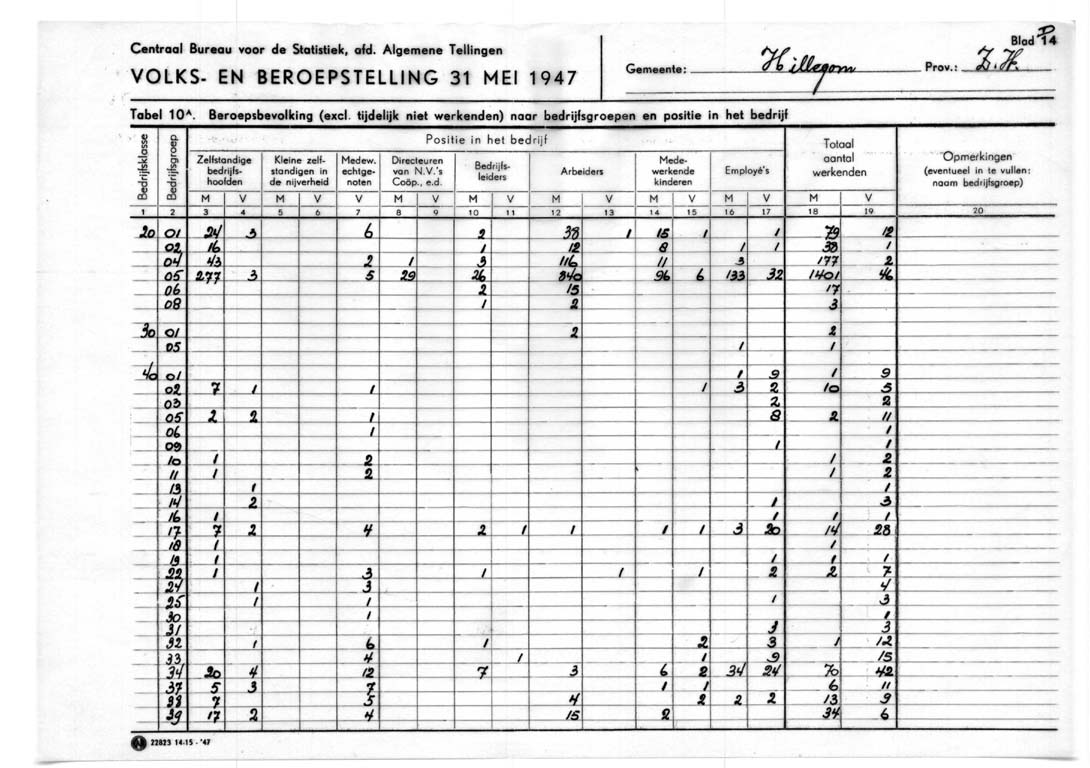 Blad D 14
Centraal Bureau voor de Statistiek, afd. Algemene Tellingen
VOLKS- EN BEROEPSTELLING 31 MEI 1947
Gemeente: Hillegom Prov.: Z.H.
Tabel 10A. Beroepsbevolking (excl. tijdelijk niet werkenden) naar bedrijfsgroepen en positie in het bedrijf
Bedrijfsklasse
Bedrijfsgroep
Positie in het bedrijf
Zelfstandige bedrijfs-hoolden
Kleine zelf-standigen in de nijverheid
Medew. echtge-noten
Directeuren van N.V.'s Coöp., e.d.
Bedrijfs-leiders
Arbeiders
Mede-werkende kinderen
Employé's
Totaal aantal werkenden
Opmerkingen (eventueel in te vullen: naam bedrijfsgroep)
M V M V V M V M V M V M V M V M V
1 2 3 4 5 6 7 8 9 10 11 12 13 14 15 16 17 18 19 20
20 01 24 3 6 2 38 1 15 1 1 79 12
02 16 1 12 8 1 1 38 1
04 43 2 1 3 116 11 3 177 2
05 277 3 5 29 26 840 96 6 133 32 1401 46
06 2 15 17
08 1 2 3
30 01 2 2
05 1 1
40 01 1 9 1 9
02 7 1 1 1 3 2 10 5
03 2 2
05 2 2 1 8 2 11
06 1 1
09 1 1
10 1 2 1 2
11 1 2 1 2
13 1 1
14 2 1 3
16 1 1 1 1
17 7 2 4 2 1 1 1 1 3 20 14 28
18 1 1
19 1 1 1 1
22 1 3 1 1 1 2 2 7
24 1 3 4
25 1 1 1 3
30 1 1
31 3 3
32 1 6 1 2 3 1 12
33 4 1 1 9 15
34 20 4 12 7 3 6 2 34 24 70 42
37 5 3 7 1 1 6 11
38 7 5 4 2 2 2 13 9
39 17 2 4 15 2 34 6
N 22823 14-15 - '47